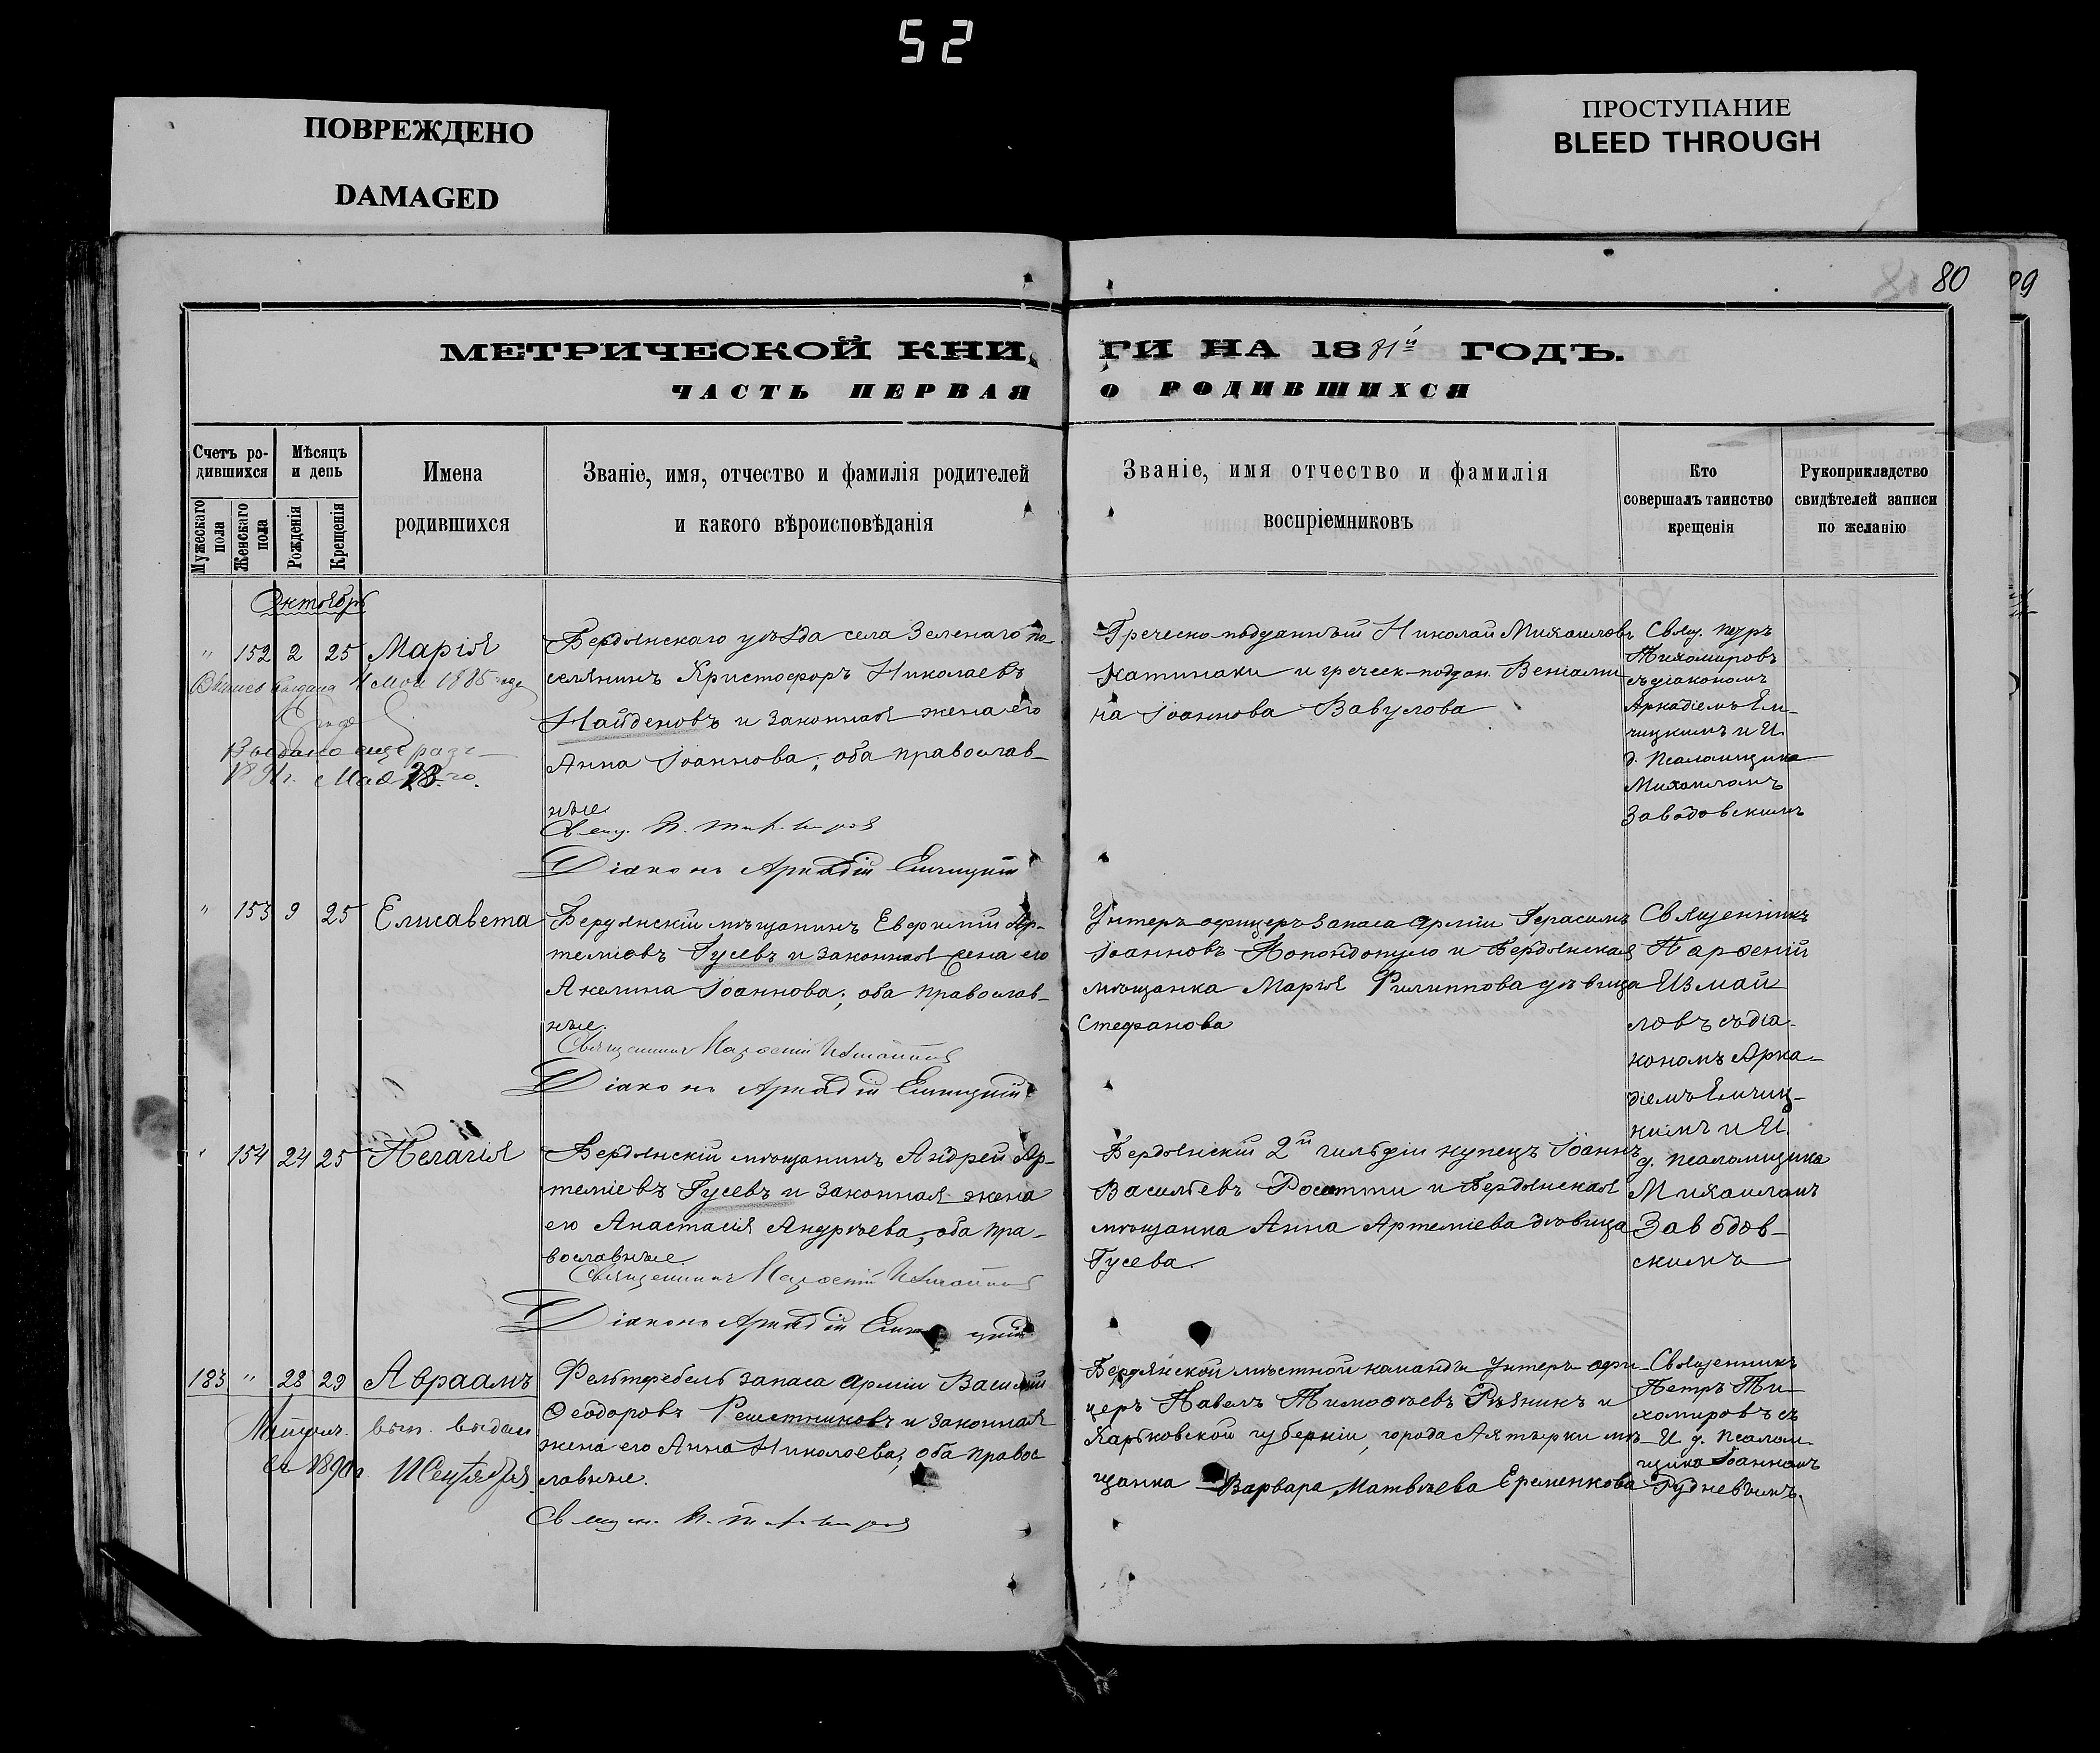 52
ПОВРЕЖДЕНО
DAMAGED
ПРОСТУПАНИЕ
BLEED THROUGH
80
99
МЕТРИЧЕСКОЙ КНИ
ГИ НА 1881й ГОДЪ.
ЧАСТЬ ПЕРВАЯ
О РОДИВШИХСЯ
Счетъ ро-
дившихся
Мужескаго пола
Женскаго пола
Мѣсяцъ
и день
Рожденія
Крещенія
Имена
родившихся
Званіе, имя, отчество и фамилія родителей
и какого вѣроисповѣданія
Званіе, имя отчество и фамилія
воспріемниковъ
Кто
совершалъ таинство
крещенія
Рукоприкладство
свидѣтелей записи
по желанію
Октябрь
" 152 2 25 Марія
выдана 4 мая 1885 года
Выдано еще разъ
189 г. Мая 28-го.
Бердянскаго уѣзда села Зеленаго по-
селянинъ Христофоръ Николаевъ
Найденовъ и законная жена его
Анна Іоаннова; оба православ-
ные
Свящ. П. Тихомировъ
Діаконъ Аркадій Емчицкій
Греческо-подданный Николай Михаиловъ
Катинаки и греческ-поддан. Веніами
на Іоаннова Вавулова
Свящ. Петръ
Тихомировъ
съ діакономъ
Аркадіемъ Ем-
чицкимъ и И.
д. Псаломщика
Михаиломъ
Заводовскимъ
" 153 9 25 Елисавета
Бердянскій мѣщанинъ Евфимій Ар-
теміевъ Гусевъ и законная жена его
Акелина Іоаннова; оба православ-
ные.
Священникъ Парѳеній Измаиловъ
Діаконъ Аркадій Емчицкій
Унтеръ офицеръ запаса арміи Герасимъ
Іоанновъ Попондопуло и Бердянская
мѣщанка Марія Филиппова дѣвица
Стефанова
Священникъ
Парѳеній
Измай
ловъ съ діа-
кономъ Арка-
діемъ Емчиц-
кимъ и И.
д. псаломщика
Михаиломъ
Заводов-
скимъ
" 154 24 25 Пелагія
Бердянскій мѣщанинъ Андрей Ар-
теміевъ Гусевъ и законная жена
его Анастасія Андреева, оба пра-
вославные.
Священникъ Парѳеній Измаиловъ
Діаконъ Аркадій Емчицкій
Бердянскій 2й гильдіи купецъ Іоаннъ
Васильевъ Росетти и Бердянская
мѣщанка Анна Артеміева дѣвица
Гусева.
183 " 28 29 Авраамъ
вып. выдан
въ 1890 г. Сентября
Фельтфебель запаса арміи Василій
Ѳеодоровъ Решетниковъ и законная
жена его Анна Николаева; оба правос
лавные.
Священ. П. Тихомировъ
Бердянской мѣстной команды унтеръ-офи
церъ Павелъ Тимоѳеевъ Рѣзникъ и
Харьковской губерніи, города Ахтырки мѣ-
щанка Варвара Матвѣева Еременкова
Священникъ
Петръ Ти-
хомировъ съ
И. д. псалом-
щика Іоанномъ
Рудневымъ.